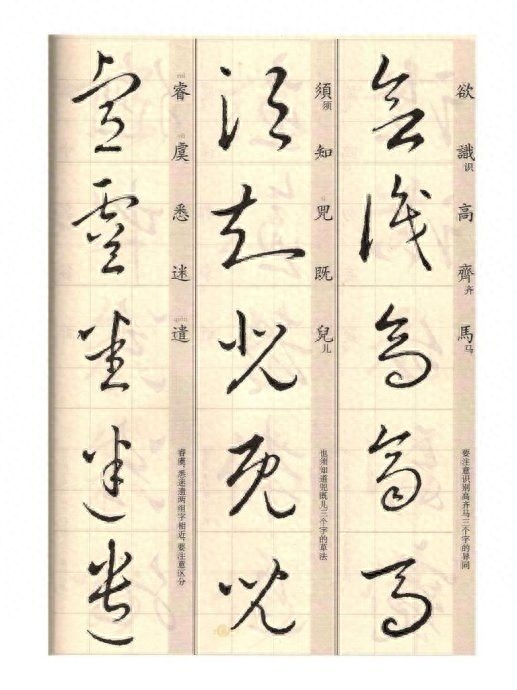 欲識识高齊齐馬马
要注意识别高齐马三个字的异同
欲識高齊馬
須须知兕既兒儿
也须知道兕既儿三个字的草法
須知兕既兒
睿虞悉迷遣
睿虞、悉迷遣两组字相近,要注意区分
睿虞悉迷遣